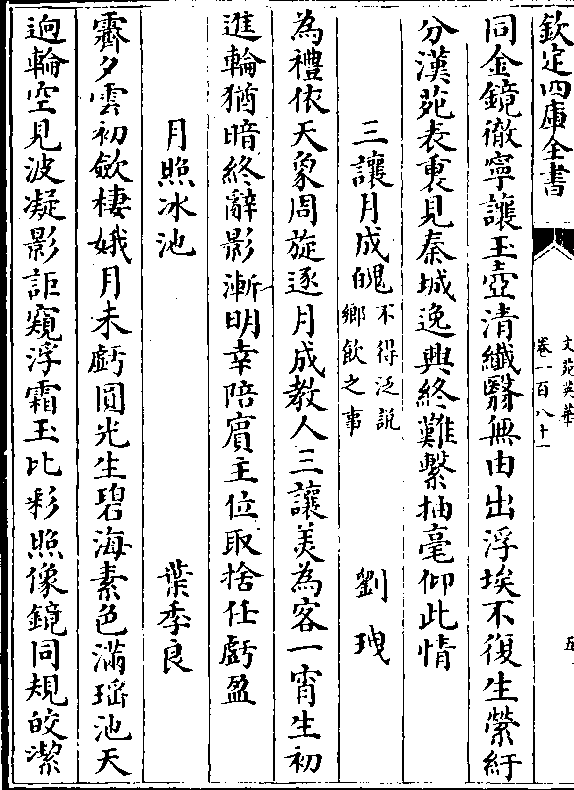 欽定四庫全書
文苑英華
卷一百八十一
五
同金鏡徹寧讓玉壺清纖翳無由出浮埃不復生縈紆
分漢苑表裏見秦城逸興終難繫抽毫仰此情
三讓月成魄不得泛說鄉飲之事 劉玧
為禮依天象周旋逐月成教人三讓美為客一宵生初
進輪猶暗終辭影漸明幸陪賓主位取捨仕虧盈
月照冰池 葉季良
霽夕雲初歛棲娥月未虧圓光生碧海素色滿瑶池天
逈輪空見波凝影詎窺浮霜玉比彩照像鏡同規皎潔